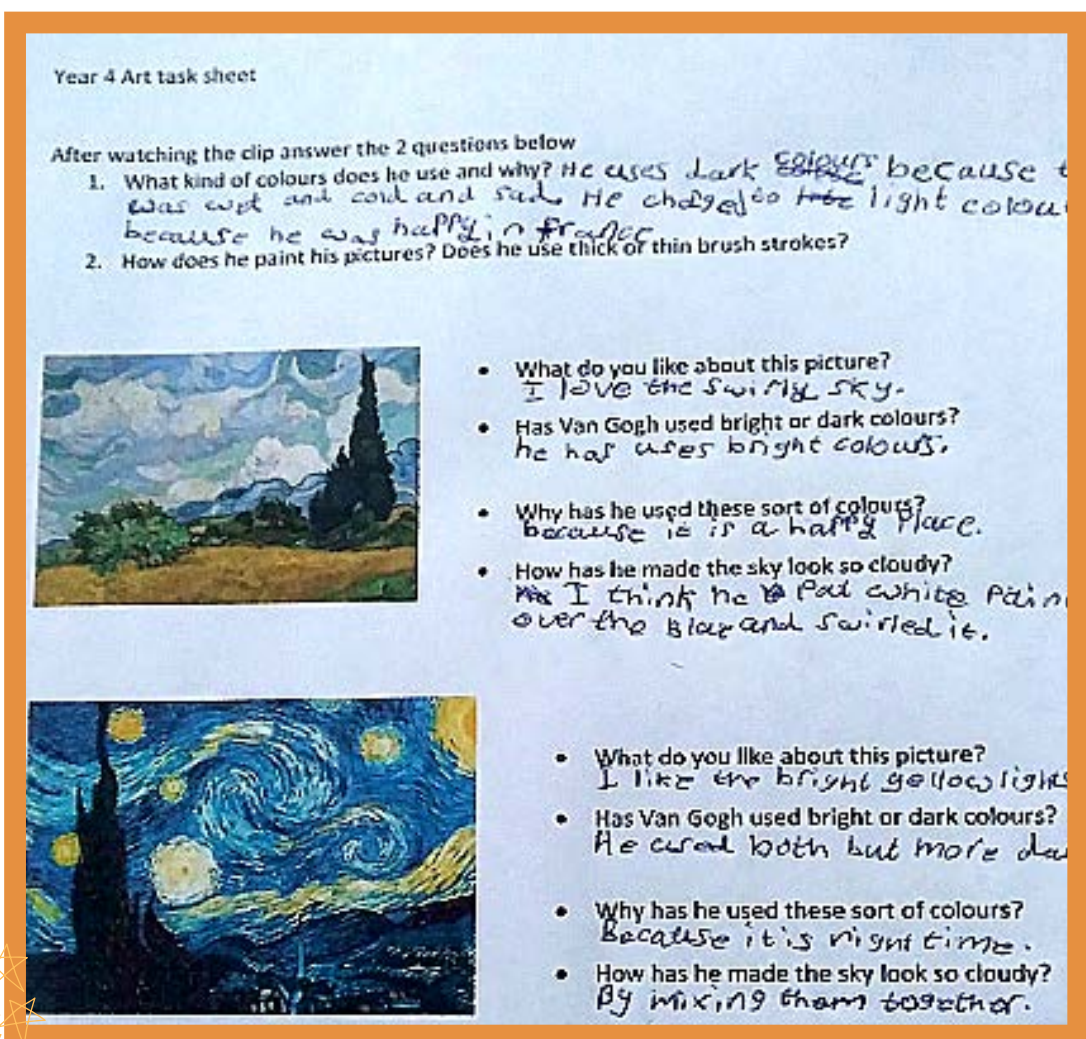 Year 4 Art task sheet
After watching the clip answer the 2 questions below
1. What kind of colours does he use and why? He uses dark colours because
was wet and cold and sad. He chdged to light colou
because he was happy in france
2. How does he paint his pictures? Does he use thick or thin brush strokes?
• What do you like about this picture?
I love the swirly sky.
• Has Van Gogh used bright or dark colours?
he has uses bright colours.
• Why has he used these sort of colours?
because it is a happy place.
• How has he made the sky look so cloudy?
I think he Put white Pain
over the and swirled it.
• What do you like about this picture?
I like the bright yellow lights
• Has Van Gogh used bright or dark colours?
He used both but more da
• Why has he used these sort of colours?
Because it's night time.
• How has he made the sky look so cloudy?
By mixing them together.